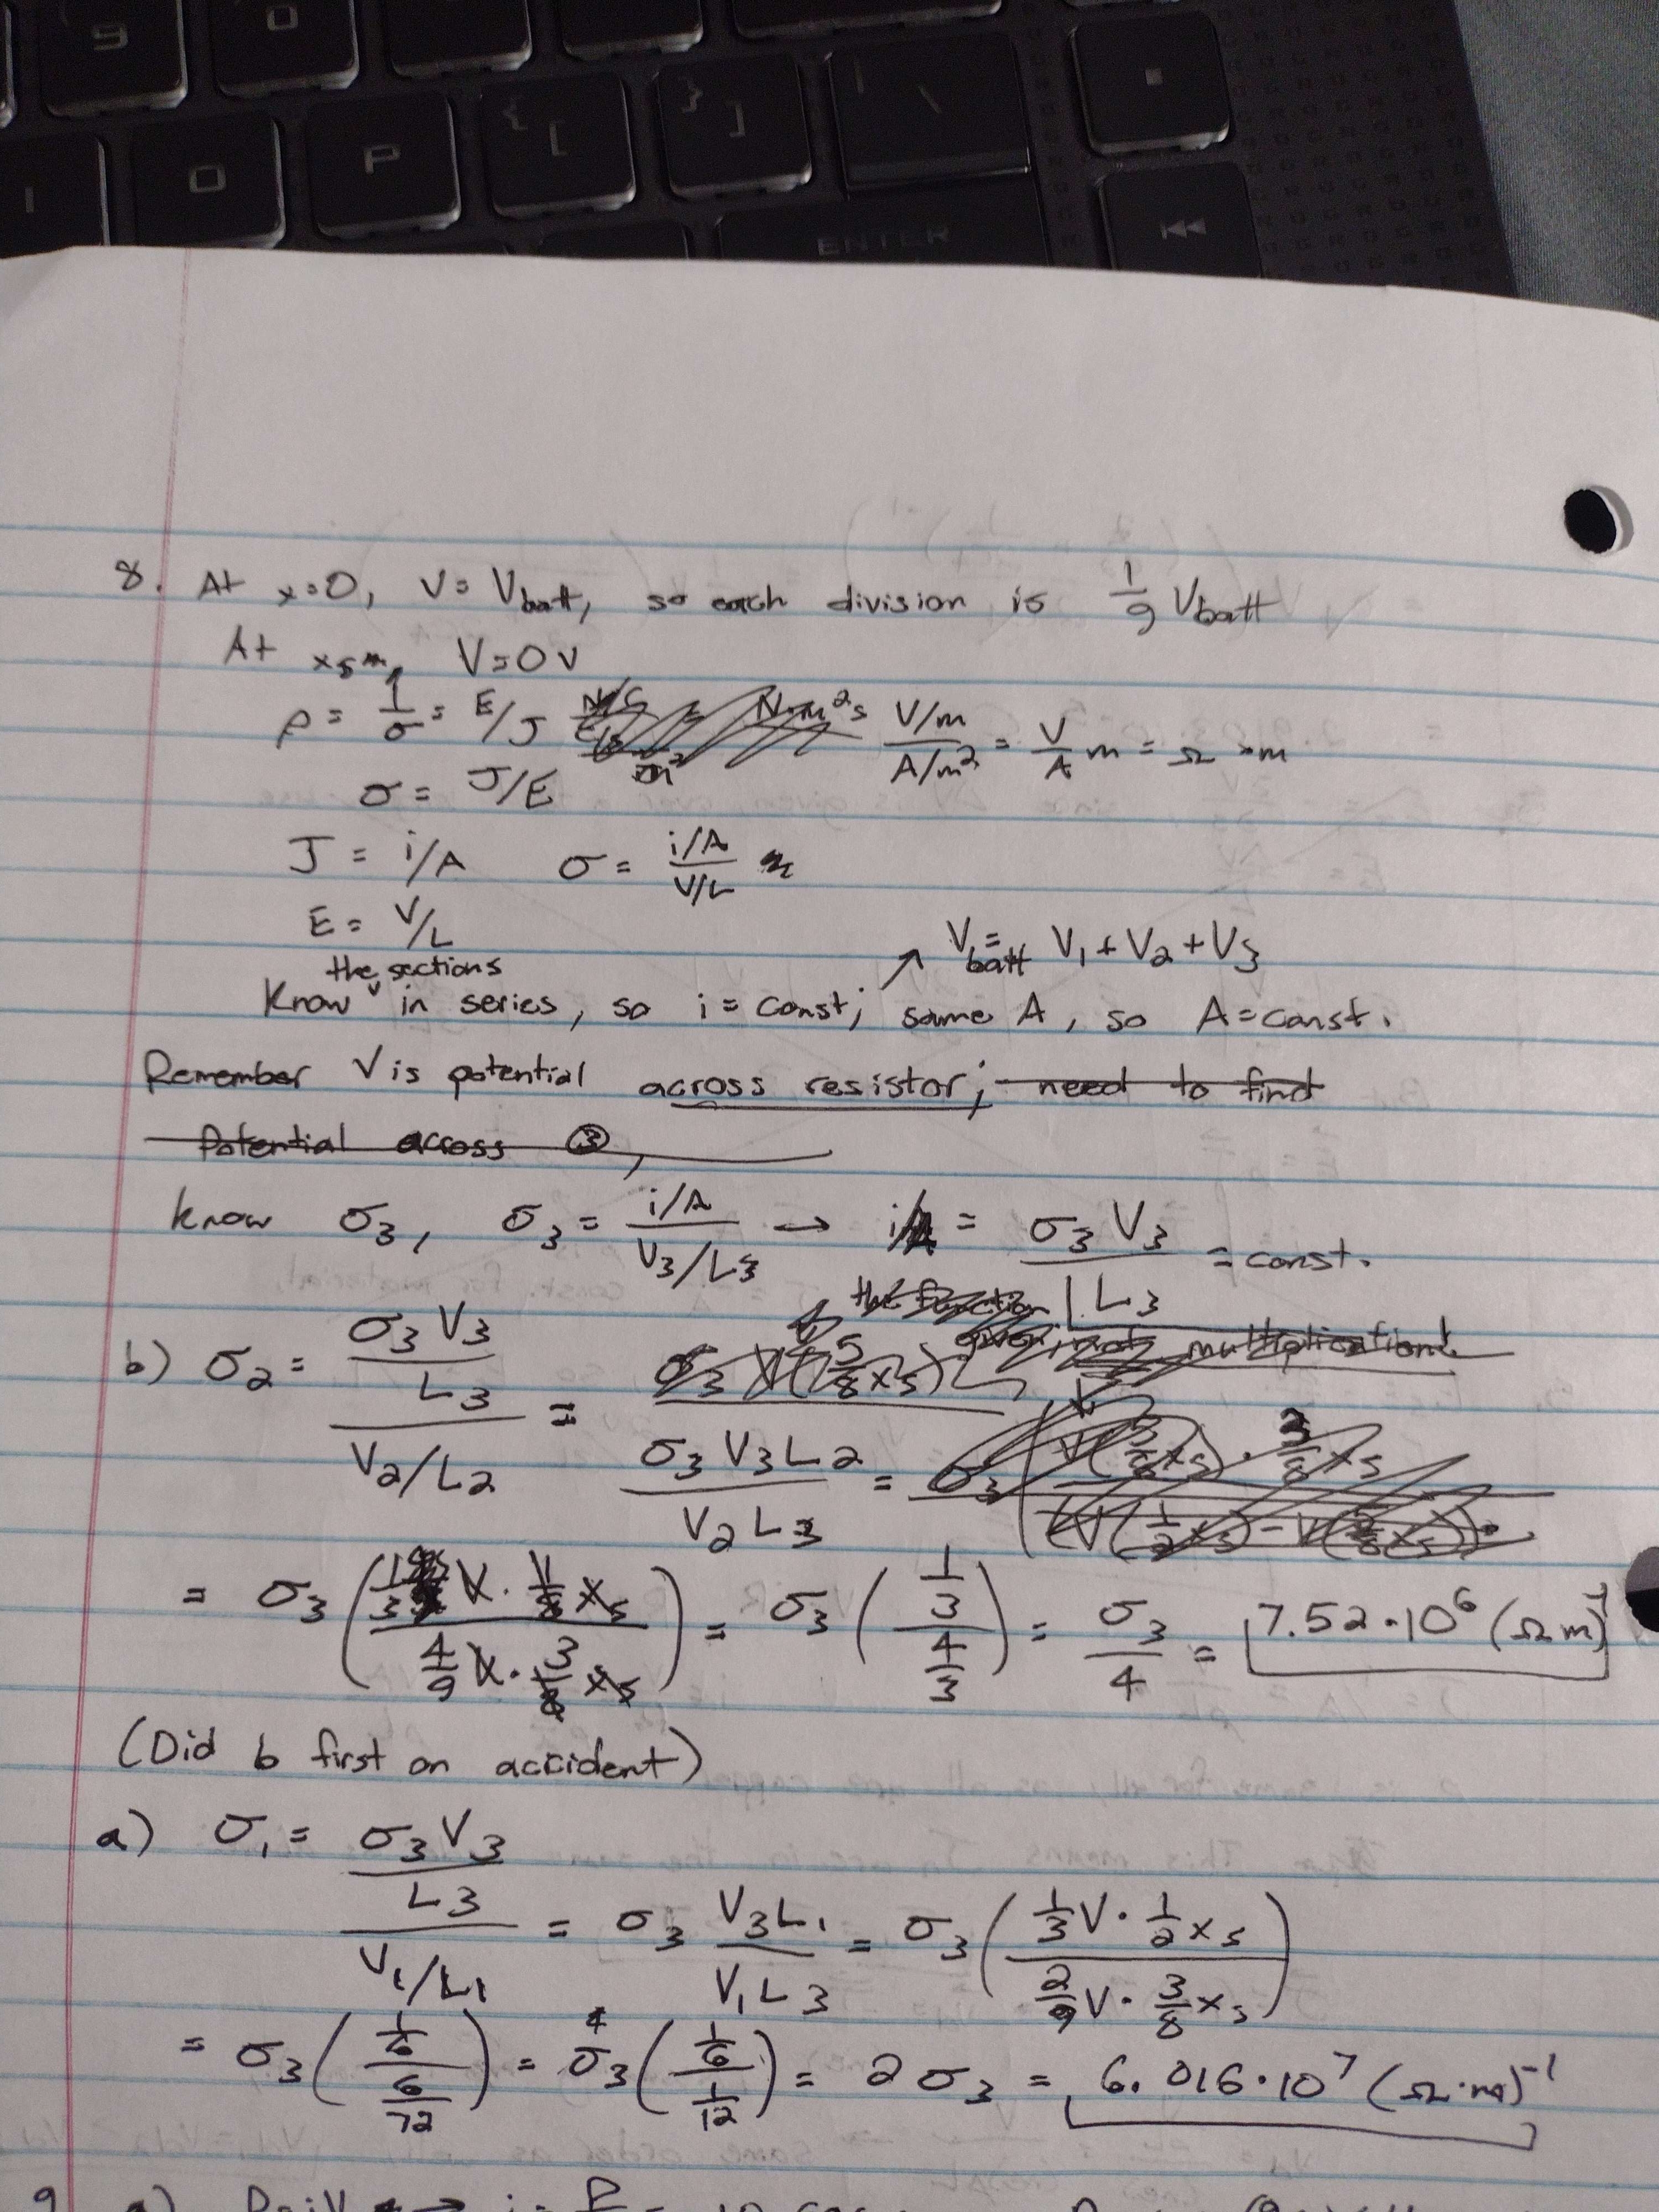 9 0
{ [ } ] | \
I O P
ENTER
8. At x=0, V= Vbatt, so each division is 1/9 Vbatt
At xs m, V=0 V
ρ = 1/σ = E/J (V/m)/(A/m²) = V/A m = Ω·m
σ = J/E
J = i/A σ = (i/A)/(V/L)
E = V/L
Vbatt = V1 + V2 + V3
Know the sections in series, so i = const; same A, so A=const.
Remember V is potential across resistor; need to find
Potential across ③,
know σ3, σ3 = (i/A)/(V3/L3) → i/A = σ3 V3/L3 = const.
the function given, not multiplication!
b) σ2 = (σ3 V3/L3)/(V2/L2) = σ3 V3 L2/V2 L3 =
= σ3 (1/3 V · 1/8 xs / 4/9 V · 3/8 xs) = σ3 (1/3 / 4/3) = σ3/4 = 7.52·10⁶ (Ωm)⁻¹
(Did b first on accident)
a) σ1 = (σ3 V3/L3)/(V1/L1) = σ3 V3 L1/V1 L3 = σ3 (1/3 V · 1/2 xs / 2/9 V · 3/8 xs)
= σ3 (1/6 / 6/72) = σ3 (1/6 / 1/12) = 2 σ3 = 6.016·10⁷ (Ω·m)⁻¹
9. a)